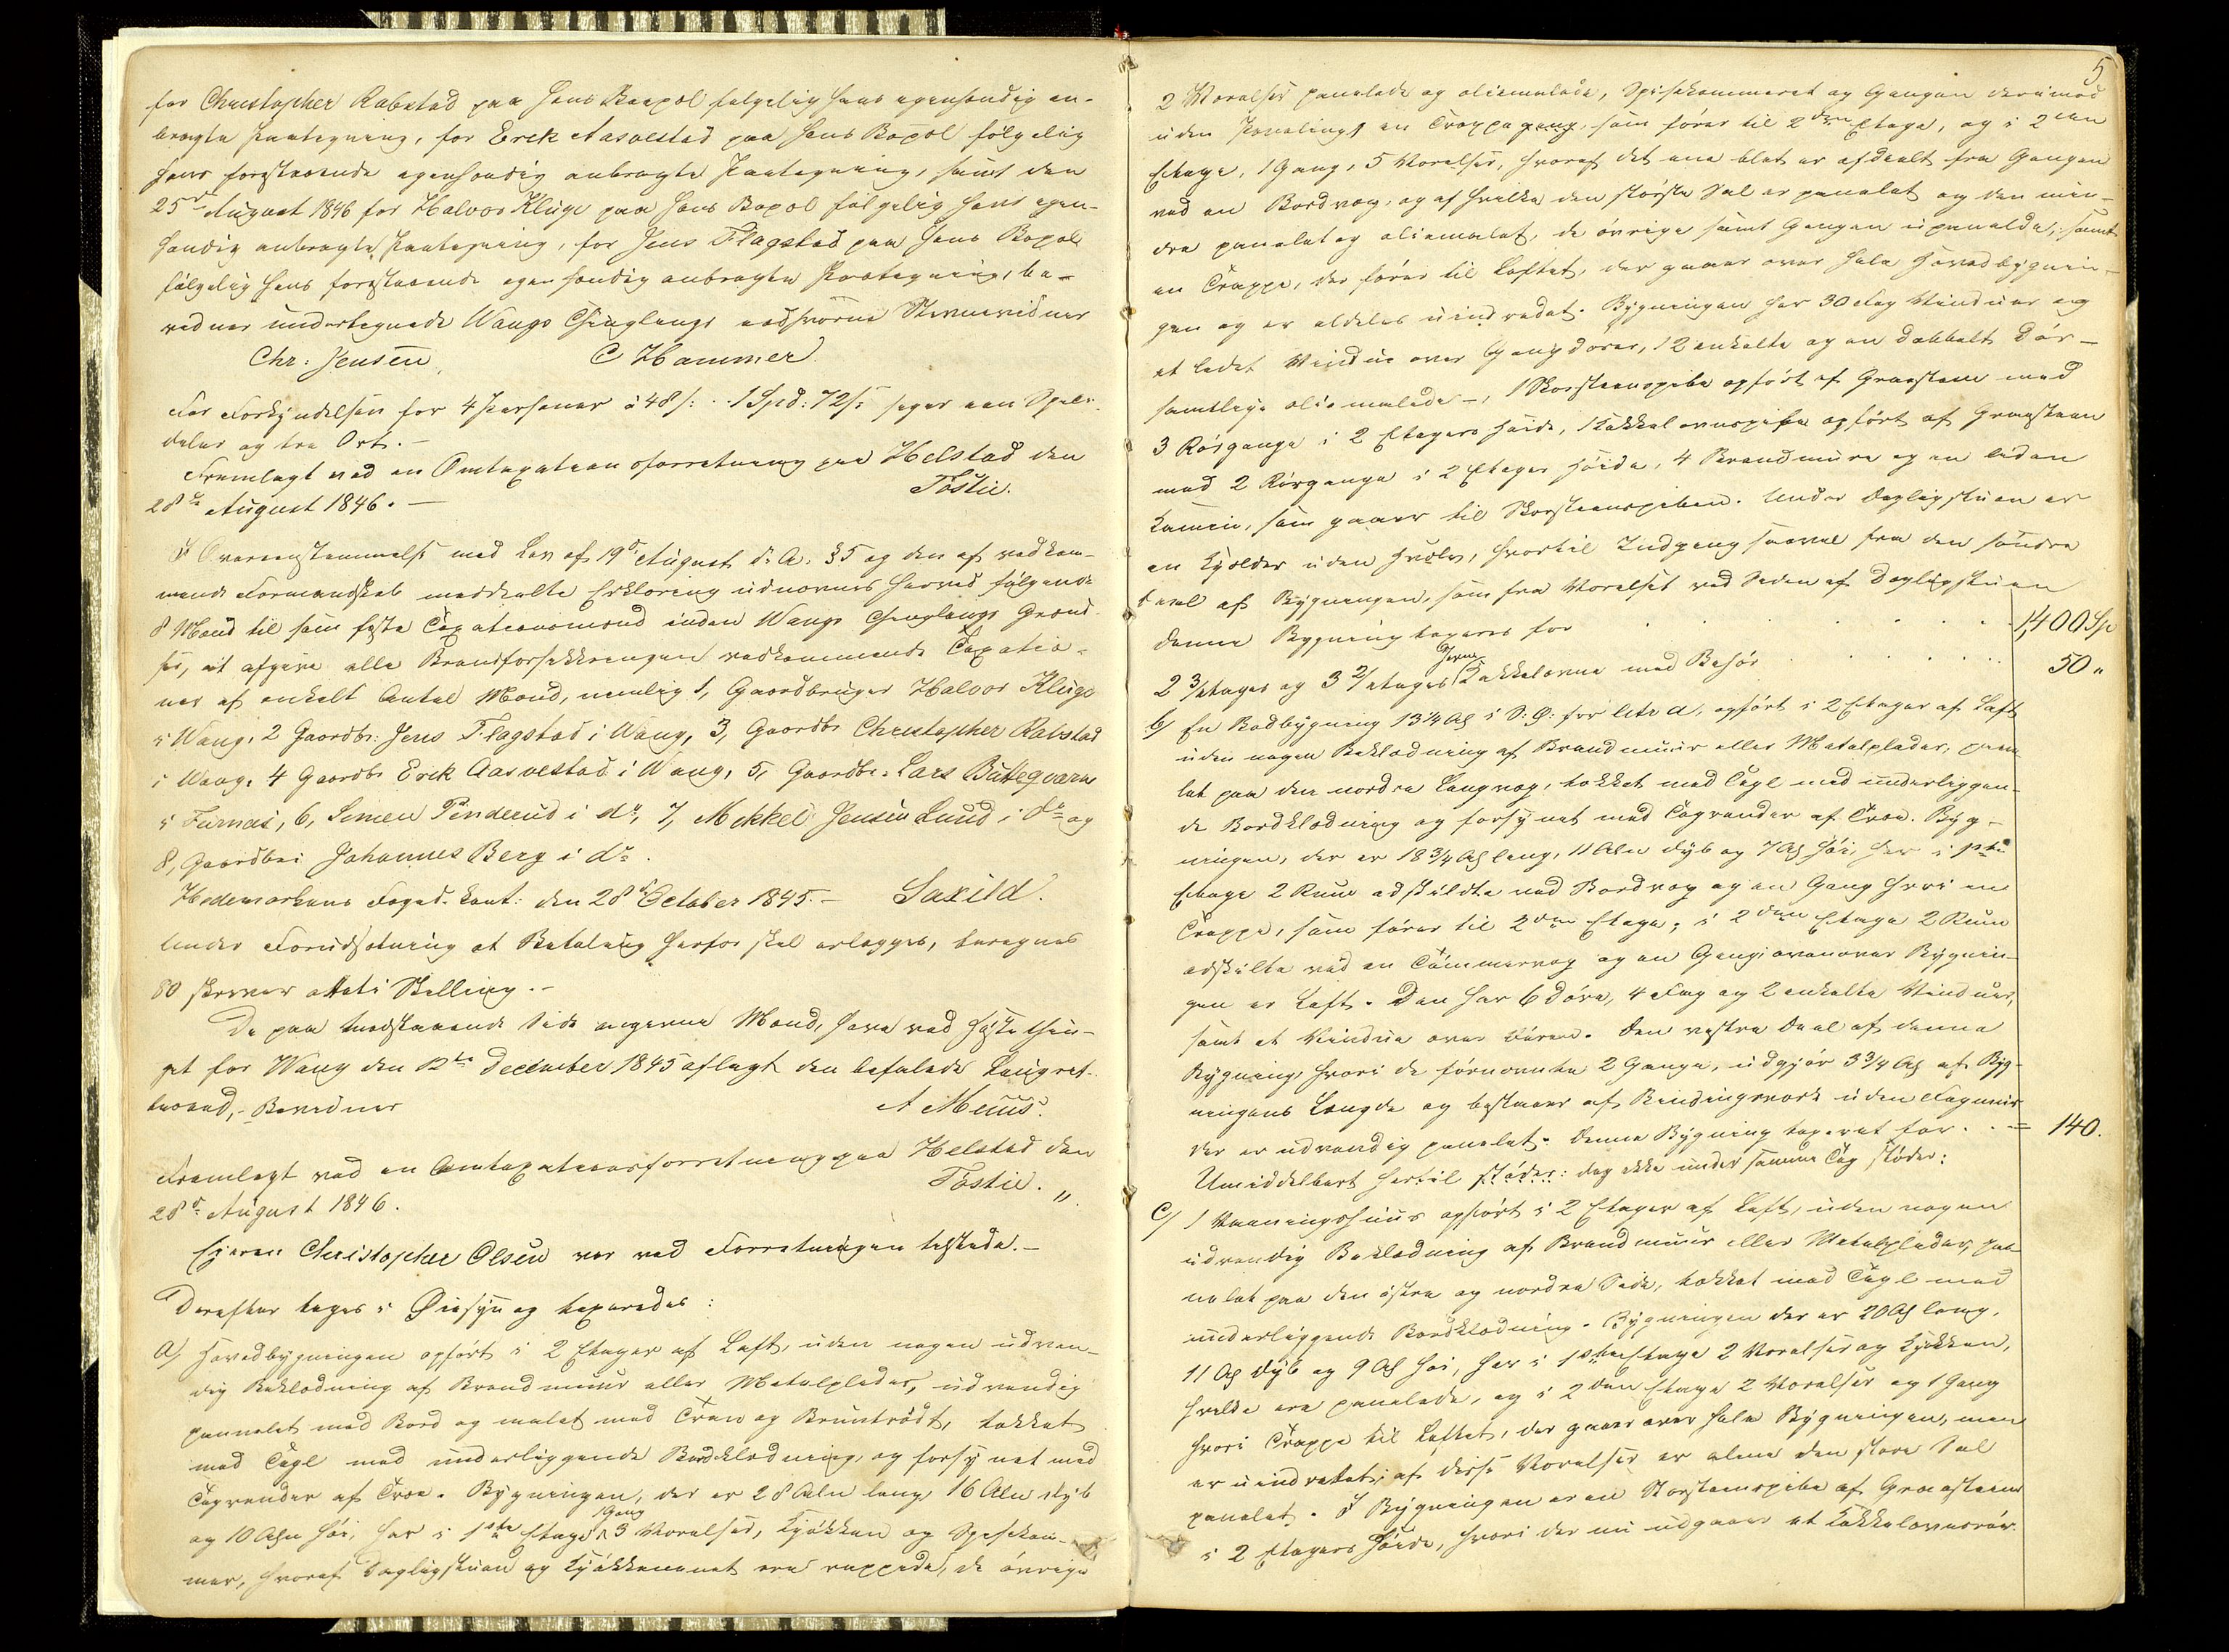 for Christopher Rabstad paa hans Boepæl følgelig hans egenhændig an-
bragte Paategning, for Erek Aasvestad paa hans Bopæl følgelig
hans forestaaende egenhændig anbragte Paategning, samt den
25de August 1846 for Halvor Kluge paa hans Bopæl følgelig hans egen-
hændig anbragte Paategning, for Jens Flagstad paa hans Bopæl
følgelig hans forestaaende egenhændig anbragte Paategning, be-
vidner undertegnede Wangs Thinglangs eedsvorne Stevnevidner
Chr: Jensen, C Hammer.
For Forkyndelsen for 4 Personer á 48 s: 1 Spd: 72 s: siger een Speci-
daler og tre Ort.-
Fremlagt ved en Omtaxationsforretning paa Helstad den
28de August 1846.- Tostie.
I Overeenstemmelse med Lov af 19de August d: A: § 5 og den af vedkom-
mende Formandskab meddeelte Erklæring udnævnes herved følgende
8 Mænd til som faste Taxationsmænd inden Wangs Thinglangs Grænd-
ser, at afgive alle Brandforsikkringen vedkommende Taxatio-
ner af enkelt Antal Mænd, nemlig 1, Gaardbruger Halvor Kluge
i Wang, 2 Gaardbr: Jens Flagstad i Wang, 3, Gaardbr Christopher Rabstad
i Wang, 4 Gaardbr Erek Aasvestad i Wang, 5, Gaardbr. Lars Bütteqvern
i Furnæs, 6, Simen Pinderud i do, 7, Mekkel Jensen Lund i do og
8, Gaardbr: Johannes Berg i do.
Hedemarkens Foged-Cont: den 28de October 1845.- Saxild.
Under Forudsætning at Betaling herfor skal erlægges, beregnes
80 skriver otteti Skilling.-
De paa modstaaende Side angivne Mænd, have ved Høstething-
et for Wang den 12te December 1845 aflagt den befalede Laugret-
teseed,- Bevidner A Meüs.
Fremlagt ved en Omtaxationsforretning paa Helstad den
28de August 1846. Tostie. "
Eieren Christopher Olsen var ved Forretningen tilstede.-
Derefter toges i Øiesyn og taxeredes:
a) Hovedbygningen opført i 2 Etager af Laft, uden nogen udven-
dig Beklædning af Brandmuur eller Metalplader, udvendig
pannelet med Bord og malet med Tran og Bruntrødt, tækket
med Tegl med underliggende Bordklædning, og forsynet med
Tagrender af Træe. Bygningen, der er 28 Alen lang 16 Alen dyb
og 10 Alen høi, har i 1ste Etage 1 Gang 3 Værelser, Kjøkken og Spisekam-
mer, hvoraf Dagligstuen og Kjøkkenet ere rappede, de øvrige
5
2 Værelser panelede og oliemalede, Spisekammeret og Gangen derimod
uden Paneling, en Trappegang, som fører til 2den Etage, og i 2den
Etage, 1 Gang, 5 Værelser, hvoraf det ene blot er afdeelt fra Gangen
ved en Bordvæg, og af hvilke den største Sal er panelet og den min-
dre panelet og oliemalet, de øvrige samt Gangen upanelde; samt
en Trappe, der fører til Loftet, der gaaer over hele Hovedbygnin-
gen og er aldeles uindredet. Bygningen har 30 Fag Vinduer og
et lidet Vindue over Gangdøren, 12 enkelte og en dobbelt Dør-
samtlige oliemalede-, 1 Skorsteenspibe opført af Graasteen med
3 Rørgange i 2 Etagers Høide, 1 Kakkelovnspibe opført af Graasteen
med 2 Rørgange i 2 Etagers Høide, 4 Brandmure og en liden
Kamin, som gaaer til Skorsteenspiben. Under Dagligstuen er
en Kjelder uden Hvælv, hvortil Indgang saavel fra den søndre
Deel af Bygningen, som fra Værelset ved Siden af Dagligstuen
denne Bygning taxeres for . . . . . 1,400 Sp
2 3/etages og 3 2/etages Jern Kakkelovne med Behør . . . . 50 "
b) En Bodbygning 13 1/4 Al i S:Ø: for litr a, opført i 2 Etager af Laft
uden nogen Beklædning af Brandmuur eller Metalplader, pane-
let paa den nordre Langvæg, tækket med Tegl med underliggen-
de Bordklædning og forsynet med Tagrender af Træe. Byg-
ningen, der er 18 3/4 Al lang, 11 Alen dyb og 7 Al høi, har i 1ste
Etage 2 Rum adskildte ved Bordvæg og en Gang hvori en
Trappe, som fører til 2den Etage; i 2den Etage 2 Rum
adskilte ved en Tømmervæg og en Gang; ovenover Bygnin-
gen er Loft. Den har 6 Døre, 4 Fag og 2 enkelte Vinduer,
samt et Vindue over Døren. Den vestre Deel af denne
Bygning, hvori deførnævnte 2 Gange, udgjør 3 3/4 Al af Byg-
ningens Længde og bestaaer af Bindingsværk uden Fagmuur
der er udvendig panelet. Denne Bygning taxeret for . . = 140.
Umiddelbart hertil støder: dog ikke under samme Tag støder:
C) 1 Vaaningshuus opført i 2 Etager af Laft, uden nogen
udvendig Beklædning af Brandmuur eller Metalplader, pa-
nelet paa den østre og nordre Side, tækket med Tegl med
underliggende Bordklædning. Bygningen der er 20 Al lang,
11 Al dyb og 9 Al høi, har i 1ste Etage 2 Værelser og Kjøkken,
hvilke ere panelede, og i 2den Etage 2 Værelser og 1 Gang
hvori Trappe til Loftet, der gaaer over hele Bygningen, men
er uindredet; af disse Værelser er alene den store Sal
panelet. I Bygningen er en Skorsteenspibe af Graasteen
i 2 Etagers Høide, hvori der nu udgaaer et Kakkelovnsrør